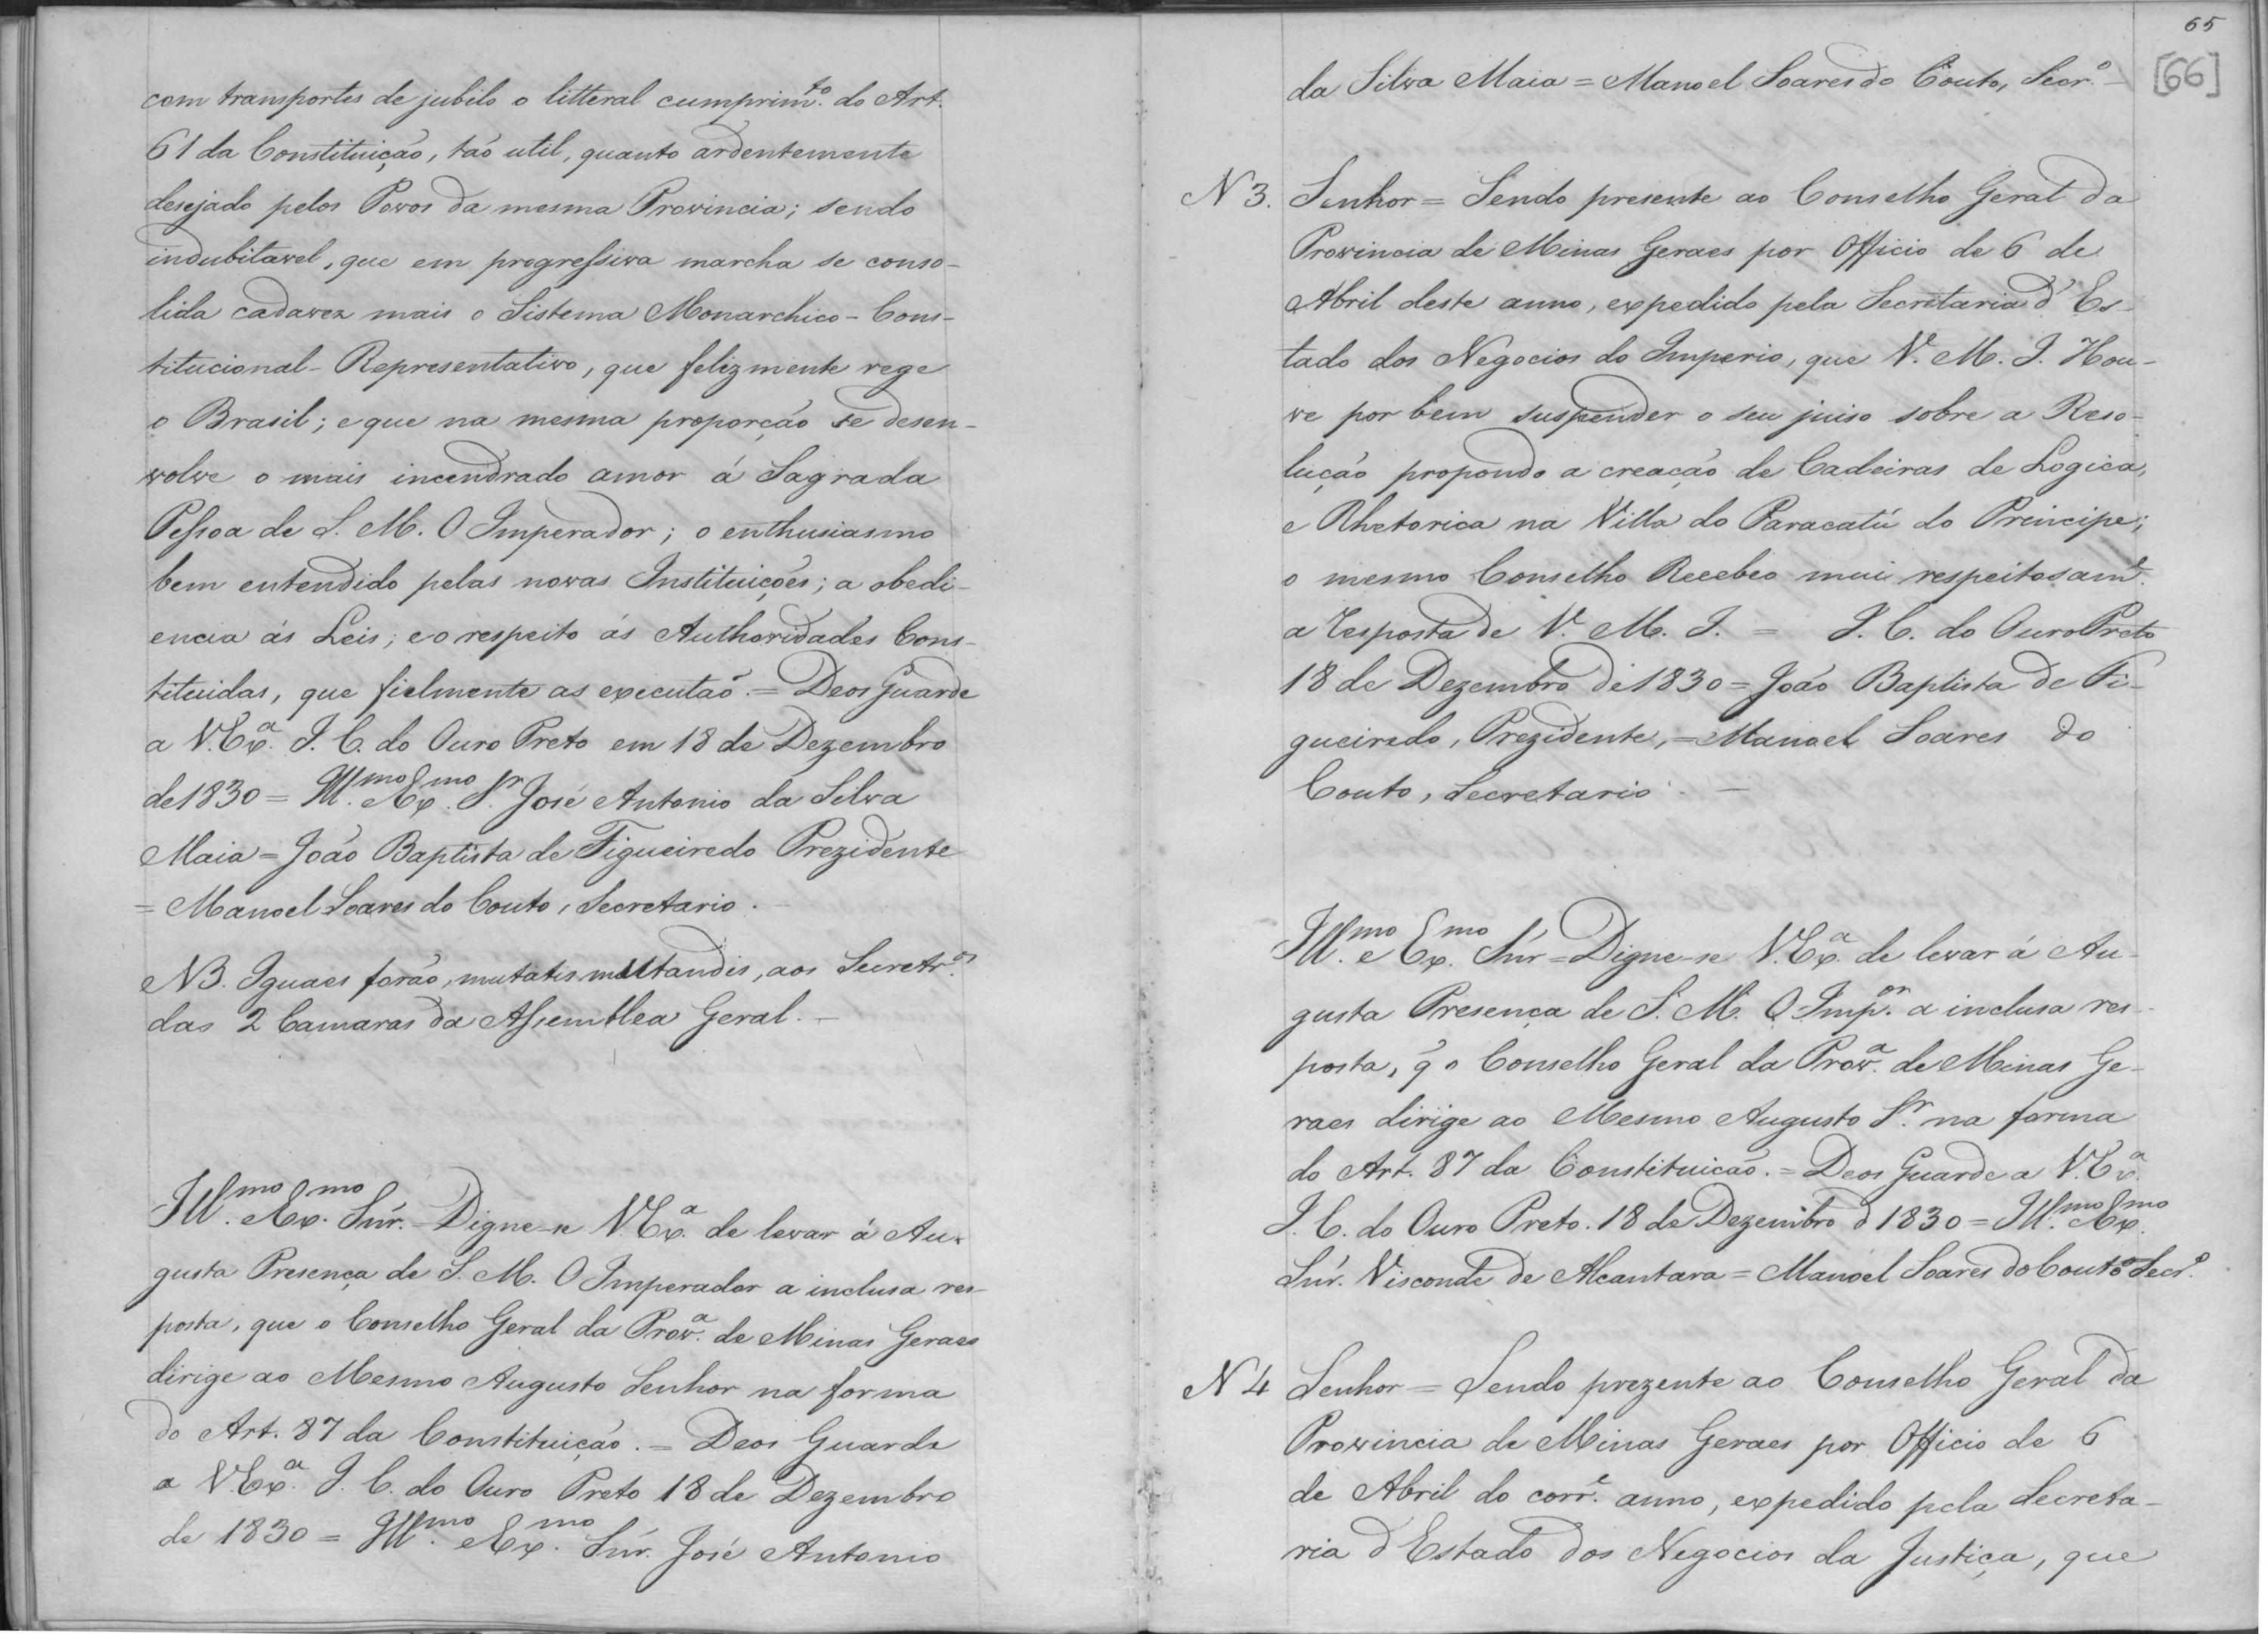 com transportes de jubilo o litteral cumprim.to do Art.
61 da Constituição, tão util, quanto ardentemente
desejado pelos Povos da mesma Provincia; sendo
indubitavel, que em progressiva marcha se conso-
lida cadavez mais o Sistema Monarchico-Cons-
titucional-Representativo, que felizmente rege
o Brasil; e que na mesma proporção se desen-
volve o mais incendrado amor á Sagrada
Pessoa de S. M. O Imperador; o enthusiasmo
bem entendido pelas novas Instituições; a obedi-
encia ás Leis; e o respeito ás Authoridades Cons-
tituidas, que fielmente as executaõ. = Deos Guarde
a V. Ex.a I. C. do Ouro Preto em 18 de Dezembro
de 1830 = Ill.mo e Ex.mo S.r José Antonio da Silva
Maia = João Baptista de Figueiredo Prezidente
= Manoel Soares do Couto, Secretario.
NB. Iguaes forão, mutatis mutandis, aos Secretr.os
das 2 Camaras da Assemblea Geral. –
Ill.mo e Ex.mo Snr. = Digne-se V. Ex.a de levar á Au-
gusta Presença de S. M. O Imperador a inclusa res-
posta, que o Conselho Geral da Prov.a de Minas Geraes
dirige ao Mesmo Augusto Senhor na forma
do Art. 87 da Constituição. = Deos Guarde
a V. Ex.a I. C. do Ouro Preto 18 de Dezembro
de 1830 = Ill.mo e Ex.mo Snr. José Antonio
65
[66]
da Silva Maia = Manoel Soares do Couto, Secr.o –
N 3. Senhor = Sendo presente ao Conselho Geral da
Provincia de Minas Geraes por Officio de 6 de
Abril deste anno, expedido pela Secretaria d'Es-
tado dos Negocios do Imperio, que V. M. I. Hou-
ve por bem suspender o seu juiso sobre a Reso-
lução propondo a creação de Cadeiras de Logica,
e Rhetorica na Villa do Paracatú do Principe;
o mesmo Conselho Recebeo mui respeitosam.e
a resposta de V. M. I. = I. C. do Ouro Preto
18 de Dezembro de 1830 = João Baptista de Fi-
gueiredo, Prezidente, = Manoel Soares do
Couto, Secretario. –
Ill.mo e Ex.mo Snr = Digne-se V. Ex.a de levar á Au-
gusta Presença de S. M. O Imp.or a inclusa res-
posta, q̃ o Conselho Geral da Prov.a de Minas Ge-
raes dirige ao Mesmo Augusto S.r na forma
do Art. 87 da Constituição. = Deos Guarde a V. Ex.a
I. C. do Ouro Preto. 18 de Dezembro d 1830 = Ill.mo e Ex.mo
Snr. Visconde de Alcantara = Manoel Soares do Couto Secr.o
N 4 Senhor = Sendo prezente ao Conselho Geral da
Provincia de Minas Geraes por Officio de 6
de Abril do corr.e anno, expedido pela Secreta-
ria d'Estado dos Negocios da Justiça, que